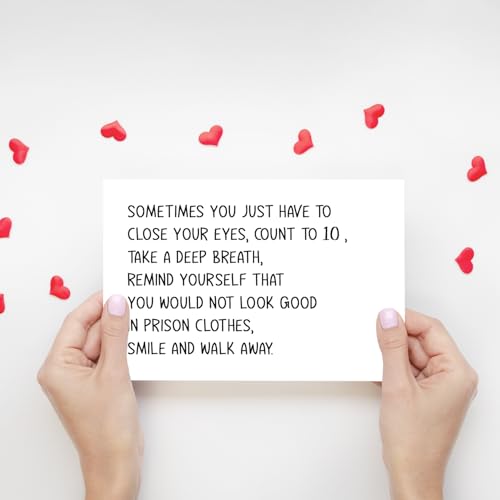 SOMETIMES YOU JUST HAVE TO
CLOSE YOUR EYES, COUNT TO 10 ,
TAKE A DEEP BREATH,
REMIND YOURSELF THAT
YOU WOULD NOT LOOK GOOD
IN PRISON CLOTHES,
SMILE AND WALK AWAY.